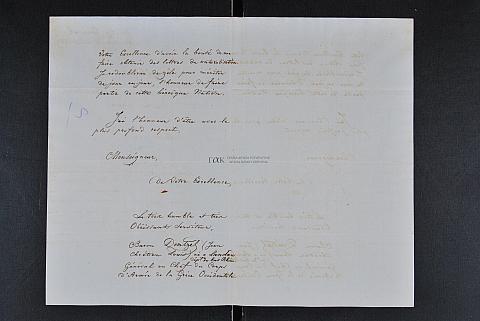 Votre Excellence d'avoir la bonté de me
faire obtenir des lettres de naturalisation
Je redoublerai de zèle pour mériter
de jour en jour l'honneur de faire
partie de cette héroïque Nation.
J'ai l'honneur d'être avec le
plus profond respect.
Monseigneur,
ΓΑΚ
De Votre Excellence,
Le très humble et très
Obéissant Serviteur,
Baron Dentzel (Jean
Chrétien Louis) né à Landau
Général en Chef du Corps
d'Armée de la Grèce Occidentale